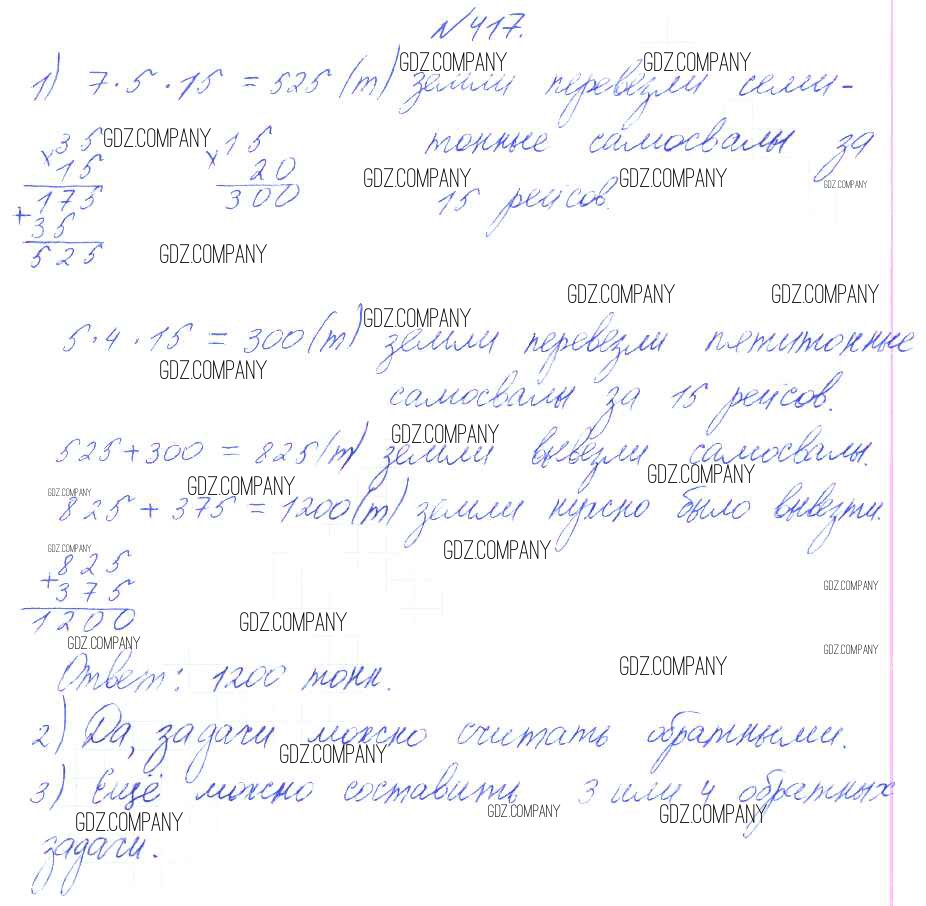 №417.
GDZ.COMPANY GDZ.COMPANY
1) 7·5·15 = 525 (т) земли перевезли семи-
×35 GDZ.COMPANY ×15 тонные самосвалы за
15 20 GDZ.COMPANY GDZ.COMPANY GDZ.COMPANY
175 300 15 рейсов.
+35
525 GDZ.COMPANY
GDZ.COMPANY GDZ.COMPANY
GDZ.COMPANY
5·4·15 = 300 (т) земли перевезли пятитонные
GDZ.COMPANY
самосвалы за 15 рейсов.
GDZ.COMPANY
525+300 = 825 (т) земли вывезли самосвалы.
GDZ.COMPANY GDZ.COMPANY GDZ.COMPANY
825 + 375 = 1200 (т) земли нужно было вывезти.
GDZ.COMPANY GDZ.COMPANY
825
+375 GDZ.COMPANY
1200 GDZ.COMPANY
GDZ.COMPANY GDZ.COMPANY GDZ.COMPANY
Ответ: 1200 тонн.
2) Да, задачи можно считать обратными.
GDZ.COMPANY
3) Ещё можно составить 3 или 4 обратных
GDZ.COMPANY GDZ.COMPANY GDZ.COMPANY
задачи.